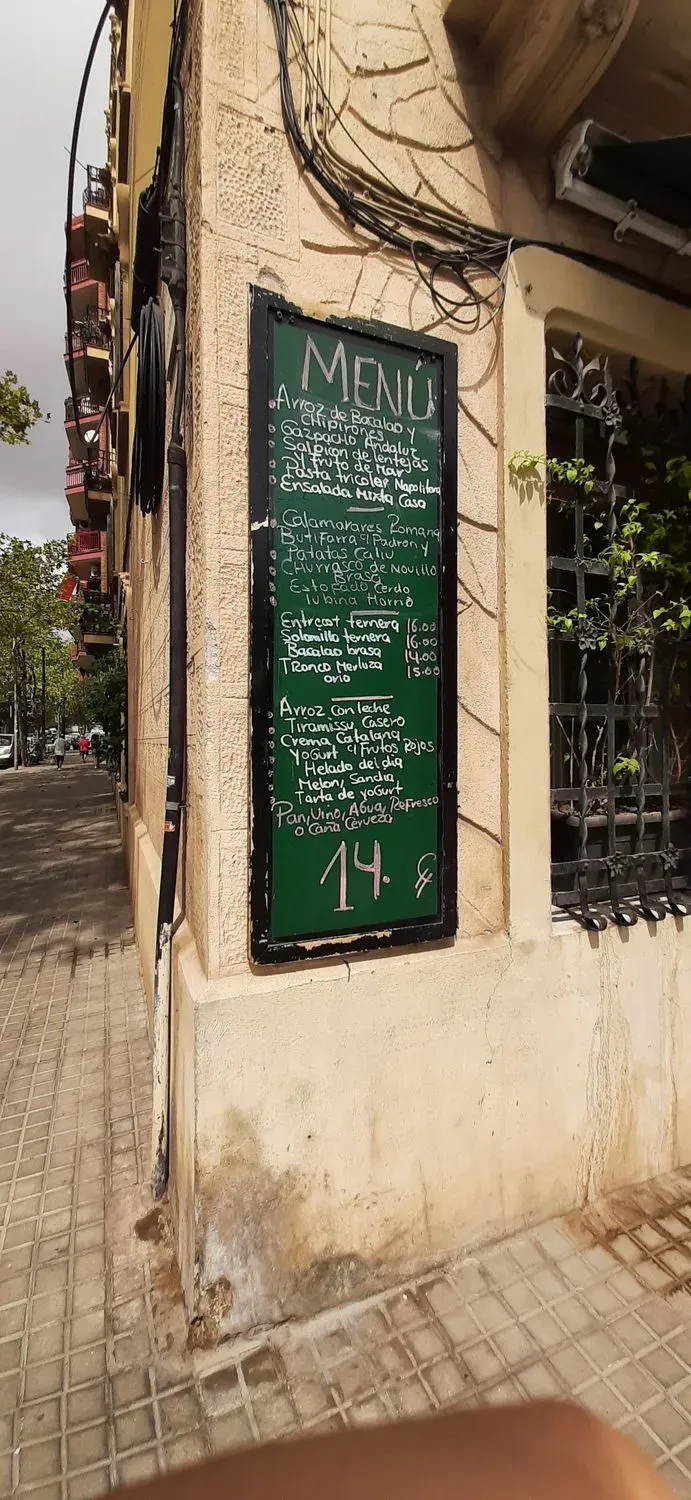 MENÚ
Arroz de Bacalao y
Chipirones
Gazpacho Andaluz
Salpicon de lentejas
Al fruto de Mar
Pasta tricolor Napolitana
Ensalada Mixta Casa
Calamarares Romana
Butifarra c/ Padron y
Patatas Caliu
Churrasco de Novillo
Brasa
Estofado Cerdo
Lubina Horno
Entrecot ternera 16.00
Solomillo ternera 16.00
Bacalao brasa 14.00
Tronco Merluza 15.00
orio
Arroz con leche
Tiramissu Casero
Crema Catalana
Yogurt c/ Frutos Rojos
Helado del dia
Melon, Sandia
Tarta de yogurt
Pan, Vino, Agua, Refresco
o Caña Cerveza
14. €